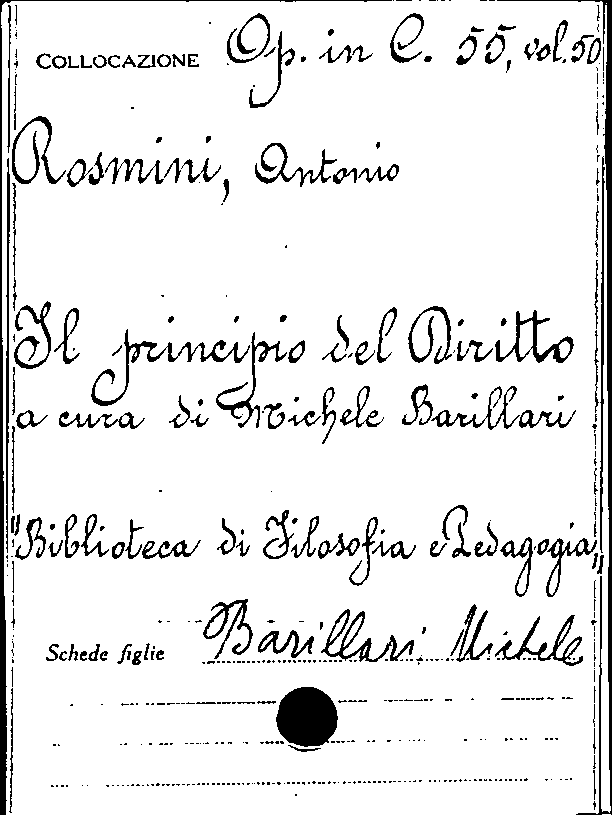 COLLOCAZIONE Op. in C. 55, vol. 50
Rosmini, Antonio
Il principio del Diritto
a cura di Michele Barillari
"Biblioteca di Filosofia e Pedagogia"
Schede figlie Barillari, Michele